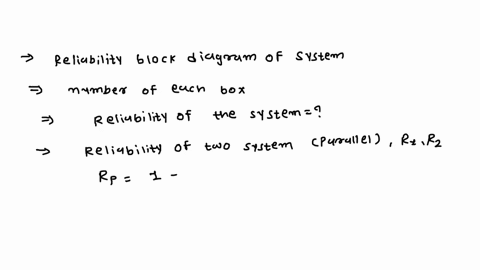 → Reliability block diagram of system
⇒ number of each box
⇒ Reliability of the system=?
→ Reliability of two system (parallel), R1, R2
Rp = 1 -